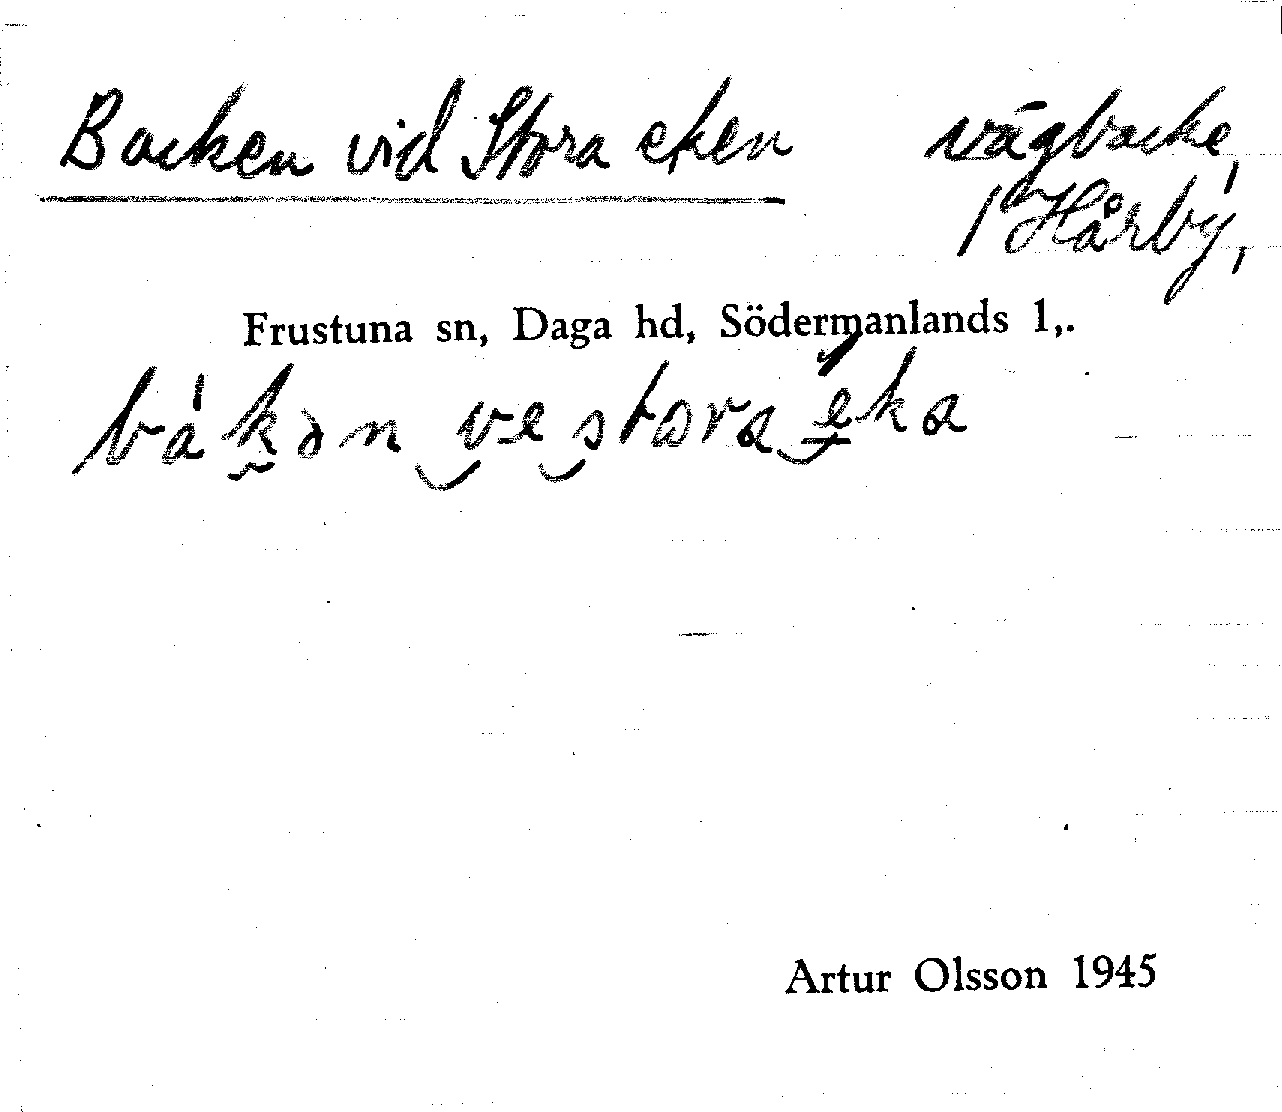 Backen vid Stora eken vägbacke,
1 Hårby,
Frustuna sn, Daga hd, Södermanlands l,.
bákən ve stora éka
Artur Olsson 1945